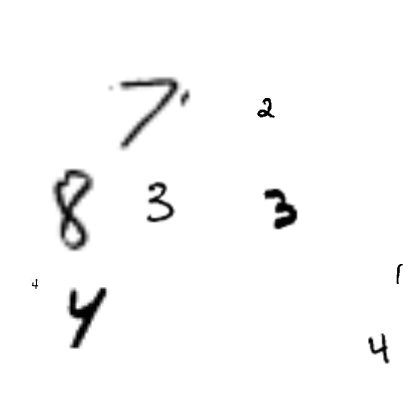 7 2
8 3 3
4 1
4 4